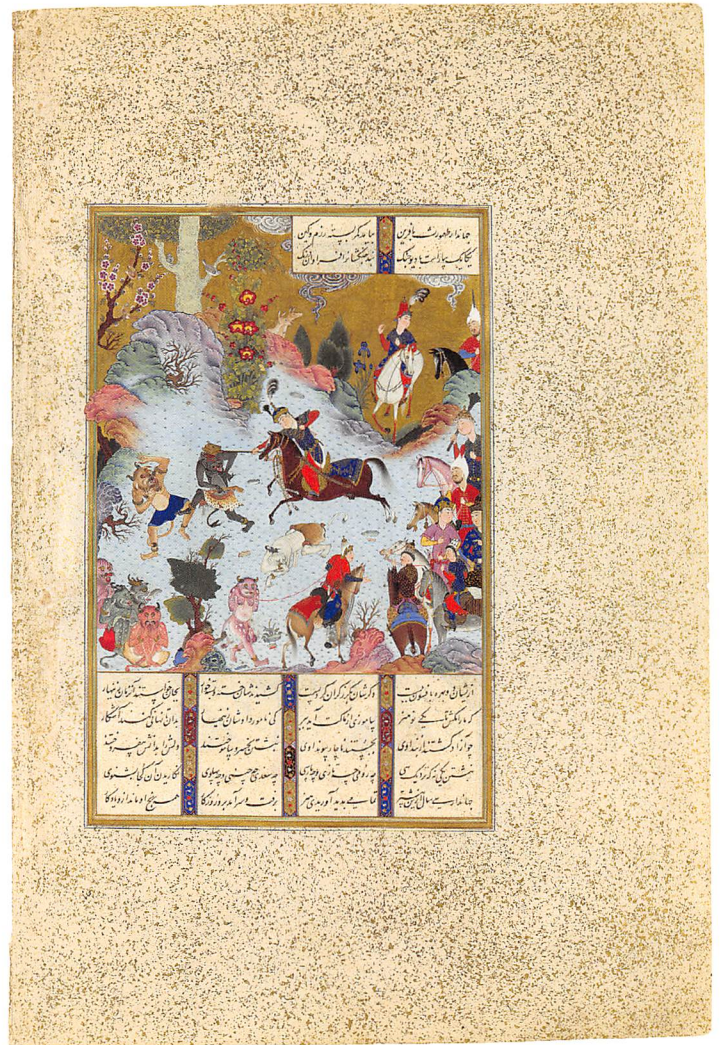 جهاندار طهمورث بافرین بیامد کمر بسته رزم و کین
یکایک بیاراست با دیو جنگ نبد جنگشان را فراوان درنگ
ازیشان دو بهره بافسون ببست دگرشان بگرز گران کرد پست کشیدندشان خسته و بسته خوار بجان خواستند آن زمان زینهار
که ما را مکش تا یکی نو هنر بیاموزی از ما کت آید ببر کی نامور دادشان زینهار بدان تا نهانی کنند آشکار
چو آزاد گشتند از بند اوی بجستند ناچار پیوند اوی نبشتن بخسرو بیاموختند دلش را بدانش برافروختند
نبشتن یکی نه که نزدیک سی چه رومی چه تازی و چه پارسی چه سغدی چه چینی و چه پهلوی نگاریدن آن کجا بشنوی
جهاندار سی سال ازین بیشتر پدید آوریدی هنر برفت و سرآمد برو روزگار همه رنج او ماند ازو یادگار